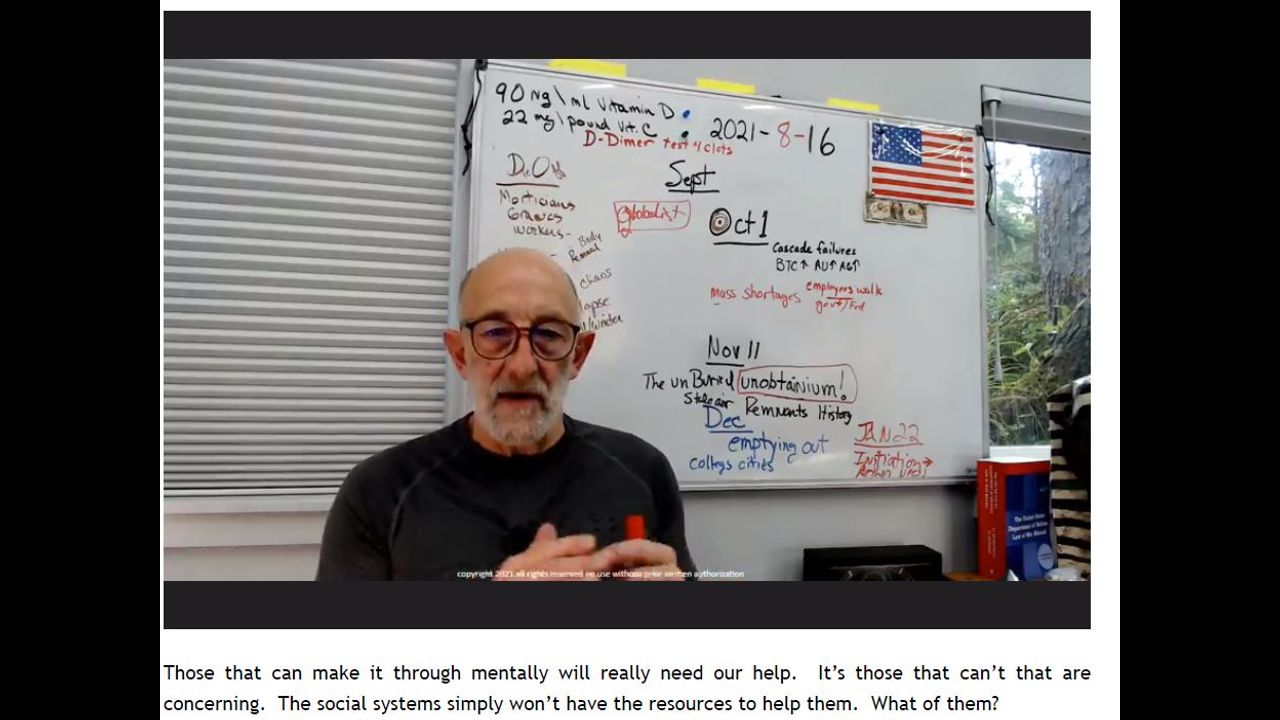 90 Ng\ml Vitamin D
22 mg\pound Vit. C
D-Dimer test 4 clots
2021-8-16
Morticians
Graves
workers-
Body
Removal
chaos
Winter
Sept
globalist
Oct 1
Cascade failures
BTC↑ AU↑ AG↑
Mass shortages
employers walk
govt/Fed
Nov 11
The unBuried unobtainium!
Remnants History
Dec
emptying out
college cities
JAN 22
Initiation→
The United States
Department of Defense
Law of War Manual
copyright 2021 all rights reserved no use without prior written authorization
Those that can make it through mentally will really need our help. It’s those that can’t that are
concerning. The social systems simply won’t have the resources to help them. What of them?